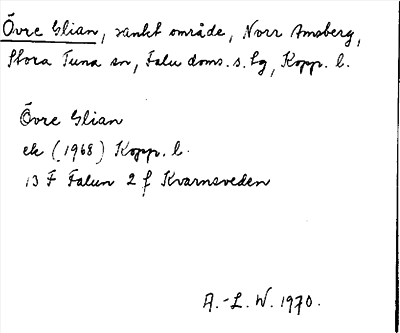 Övre Glian, sankt område, Norr Amsberg,
Stora Tuna sn, Falu doms. s. lg, Kopp. l.
Övre Glian
ek (1968) Kopp. l.
13 F Falun 2 f Kvarnsveden
A.-L. W. 1970.